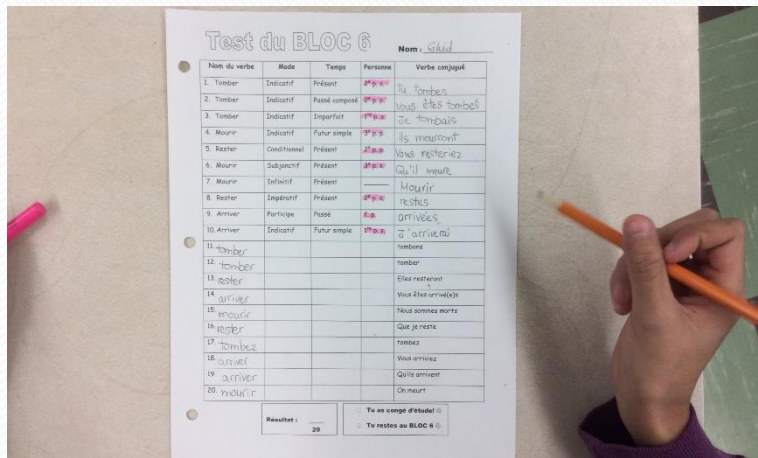 Test du BLOC 6
Nom : Ghid
Nom du verbe Mode Temps Personne Verbe conjugué
1. Tomber Indicatif Présent 2e p.s. Tu tombes
2. Tomber Indicatif Passé composé 2e p.p. Vous êtes tombés
3. Tomber Indicatif Imparfait 1re p.s. Je tombais
4. Mourir Indicatif Futur simple 3e p.p. ils mourront
5. Rester Conditionnel Présent 2e p.p. Vous resteriez
6. Mourir Subjonctif Présent 3e p.s. Qu'il meure
7. Mourir Infinitif Présent Mourir
8. Rester Impératif Présent 2e p.s. restes
9. Arriver Participe Passé f.p. arrivées
10. Arriver Indicatif Futur simple 1re p.s. J'arriverai
11. tomber tombons
12. tomber tomber
13. rester Elles resteront
14. arriver Vous êtes arrivé(e)s
15. mourir Nous sommes morts
16. rester Que je reste
17. tombez tombez
18. arriver Vous arriviez
19. arriver Qu'ils arrivent
20. mourir On meurt
Résultat : 20
Tu as congé d'étude!
Tu restes au BLOC 6